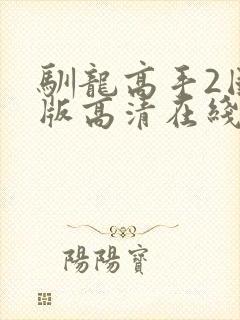 馴龍高手2國
版高清在綫
陽陽寶